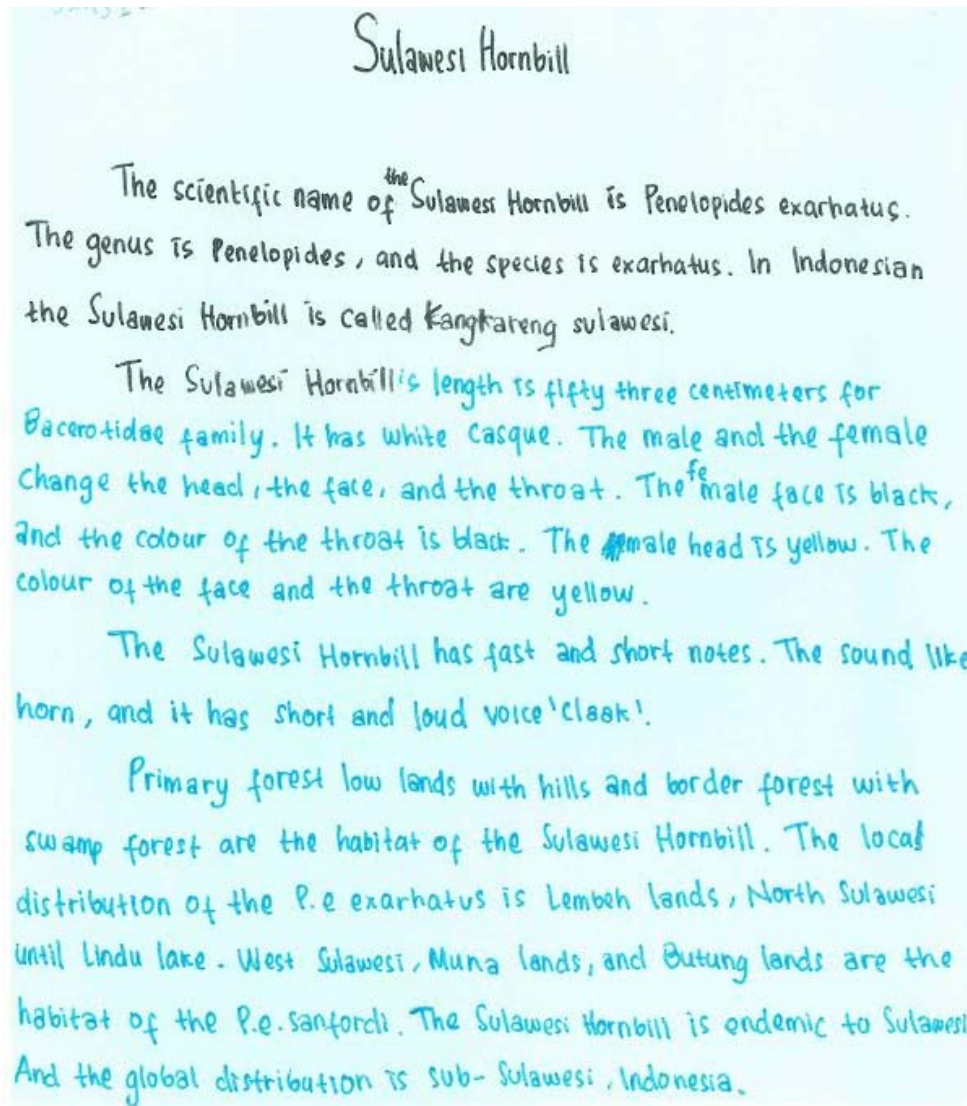 Sulawesi Hornbill
The scientific name of the Sulawesi Hornbill is Penelopides exarhatus.
The genus is Penelopides, and the species is exarhatus. In Indonesian
the Sulawesi Hornbill is called Kangkareng sulawesi.
The Sulawesi Hornbill's length is fifty three centimeters for
Bacerotidae family. It has white casque. The male and the female
change the head, the face, and the throat. The female face is black,
and the colour of the throat is black. The male head is yellow. The
colour of the face and the throat are yellow.
The Sulawesi Hornbill has fast and short notes. The sound like
horn, and it has short and loud voice 'Claak'.
Primary forest low lands with hills and border forest with
swamp forest are the habitat of the Sulawesi Hornbill. The local
distribution of the P.e exarhatus is Lembeh lands, North Sulawesi
until Lindu lake. West Sulawesi, Muna lands, and Butung lands are the
habitat of the P.e. sanfordi. The Sulawesi Hornbill is endemic to Sulawesi
And the global distribution is sub-Sulawesi, Indonesia.